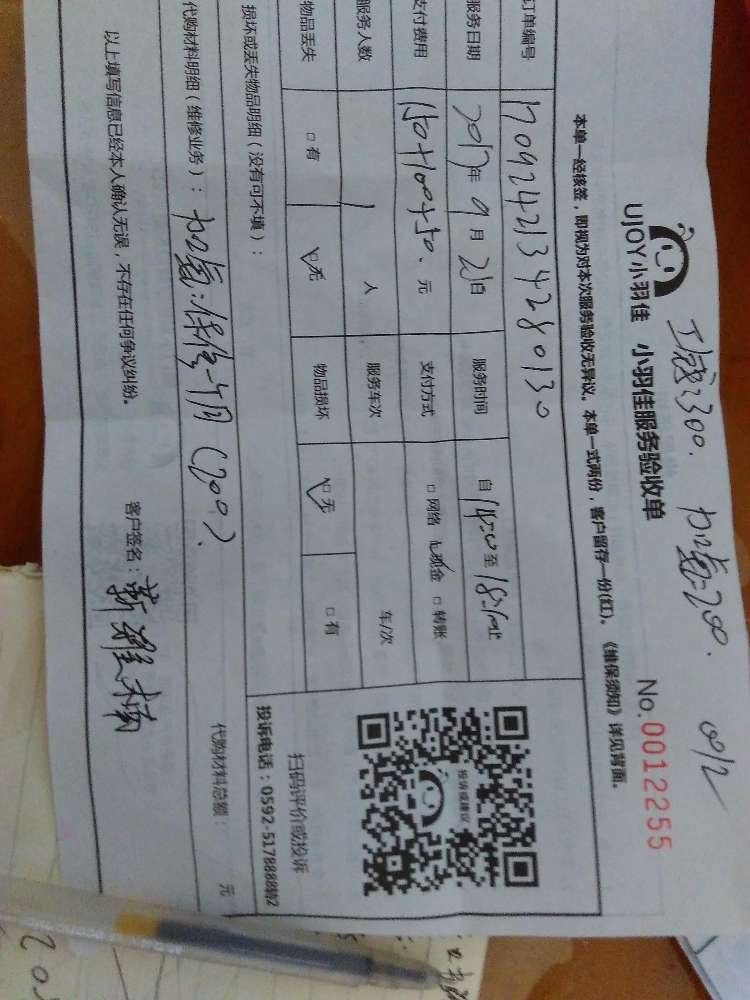 工费:300. 加氟:200.
UJOY小羽佳 小羽佳服务验收单 No.0012255
本单一经核签，即视为对本次服务验收无异议。本单一式两份，客户留存一份(红)。《维保须知》详见背面。
订单编号 1709242134280130
服务日期 2017年9月21日 服务时间 自14:00至18:10止
支付费用 150+100+50. 元 支付方式 □网络 ☑现金 □转账
服务人数 1 人 服务车次 车/次
物品丢失 □有 ☑无 物品损坏 ☑无 □有
损坏或丢失物品明细（没有可不填）：
投诉或建议
扫码评价或投诉
投诉电话：0592-5178888转2
代购材料明细（维修业务）：加氟:保修一个月(200). 代购材料总额： 元
以上填写信息已经本人确认无误，不存在任何争议纠纷。 客户签名：